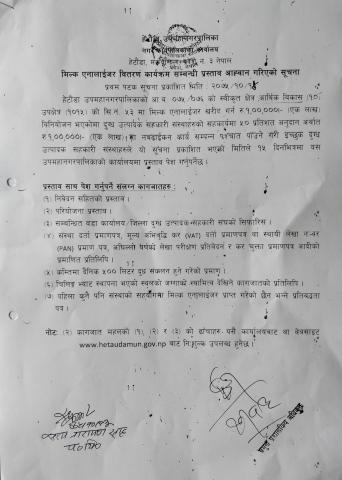 हेटौंडा उपमहानगरपालिका
नगर कार्यपालिकाको कार्यालय
हेटौंडा, मकवानपुर, प्रदेश नं. ३ नेपाल
मिल्क एनालाईजर वितरण कार्यक्रम सम्बन्धी प्रस्ताव आव्हान गरिएको सूचना
प्रथम पटक सूचना प्रकाशित मिति : २०७५/१०/
हेटौंडा उपमहानगरपालिकाको आ.व. ०७५/०७६ को स्वीकृत क्षेत्र आर्थिक विकास (१०),
उपक्षेत्र (१०१५) को सि.नं. ५३ मा मिल्क एनालाईजर खरीद गर्न रु.१,००,०००/- (एक लाख)
विनियोजन भएकोमा दुग्ध उत्पादक सहकारी संस्थाहरुको सहकार्यमा ५० प्रतिशत अनुदान अर्थात
रु.१,००,०००/- (एक लाख) सा नबढाईकन कार्य सम्पन्न पश्चात पाउने गरी इच्छुक दुग्ध
उत्पादक सहकारी संस्थाहरुले यो सूचना प्रकाशित भएको मितिले १५ दिनभित्रमा यस
उपमहानगरपालिकाको कार्यालयमा प्रस्ताव पेश गर्नुपर्नेछ ।
प्रस्ताव साथ पेश गर्नुपर्ने संलग्न कागजातहरु :
(१) निवेदन सहितको प्रस्ताव ।
(२) परियोजना प्रस्ताव ।
(३) सम्बन्धित वडा कार्यालय/जिल्ला दुग्ध उत्पादक सहकारी संघको सिफारिस ।
(४) संस्था दर्ता प्रमाणपत्र, मूल्य अभिवृद्धि कर (VAT) दर्ता प्रमाणपत्र वा स्थायी लेखा नम्बर
(PAN) प्रमाण पत्र, अघिल्लो वर्षको लेखा परीक्षण प्रतिवेदन र कर चुक्ता प्रमाणपत्र आदीको
प्रमाणित प्रतिलिपि ।
(५) कम्तिमा दैनिक ५०० लिटर दुध संकलन हुने गरेको प्रमाण ।
(६) चिलिङ्ग भ्याट स्थापना भएको स्थलको जग्गाको स्वामित्व देखिने कागजातको प्रतिलिपि ।
(७) पहिला कुनै पनि संस्थाको सहयोगमा मिल्क एनालाईजर प्राप्त गरेको छैन भन्ने प्रतिबद्धता
पत्र ।
नोट: (२) कागजात महलको (१), (२) र (३) को ढाँचाहरु यसै कार्यालयबाट वा वेबसाइट
www.hetaudamun.gov.np बाट निःशुल्क उपलब्ध हुनेछ ।
प्रमुख प्रशासकीय अधिकृत